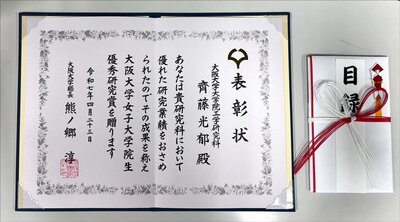 表彰状
大阪大学大学院工学研究科
齊藤光郁 殿
あなたは貴研究科において
優れた研究業績をおさめ
られたのでその成果を称え
大阪大学女子大学院生
優秀研究賞を贈ります
令和七年四月二十三日
大阪大学総長 熊ノ郷 淳
目録